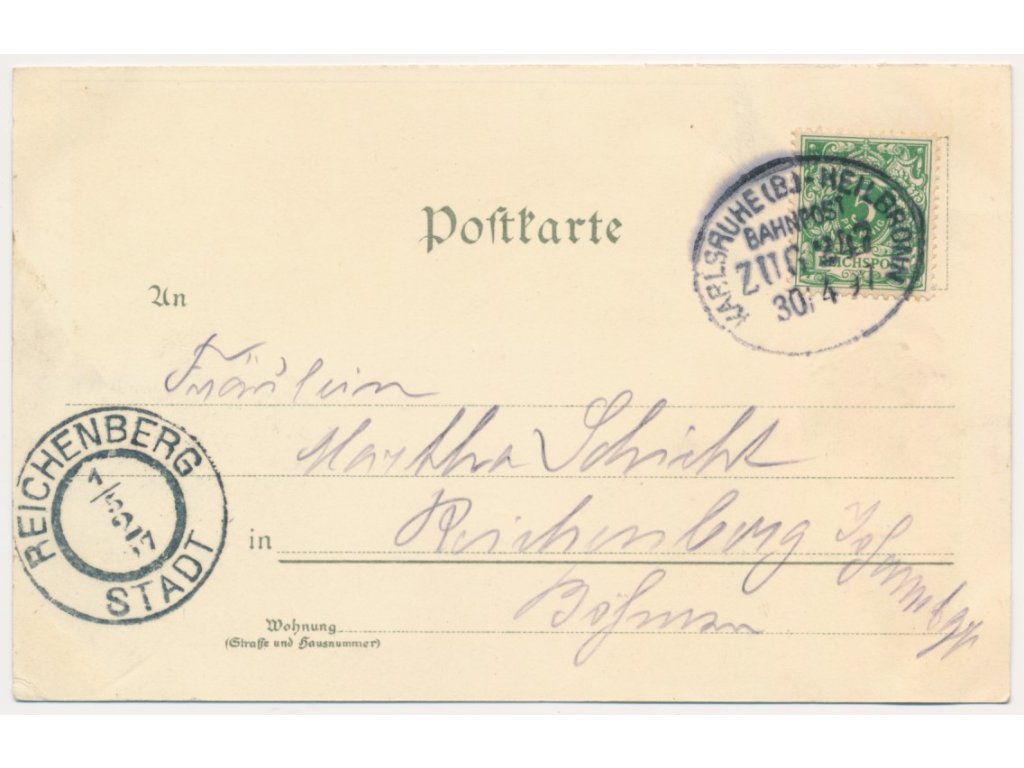 Postkarte
KARLSRUHE (B.) - HEILBRONN
BAHNPOST
ZUG 247
30/4 97
5
REICHSPOST
An
Fräulein
Martha Schicht
in Reichenberg
Böhmen
REICHENBERG
1/5
97
STADT
Wohnung
(Straße und Hausnummer)